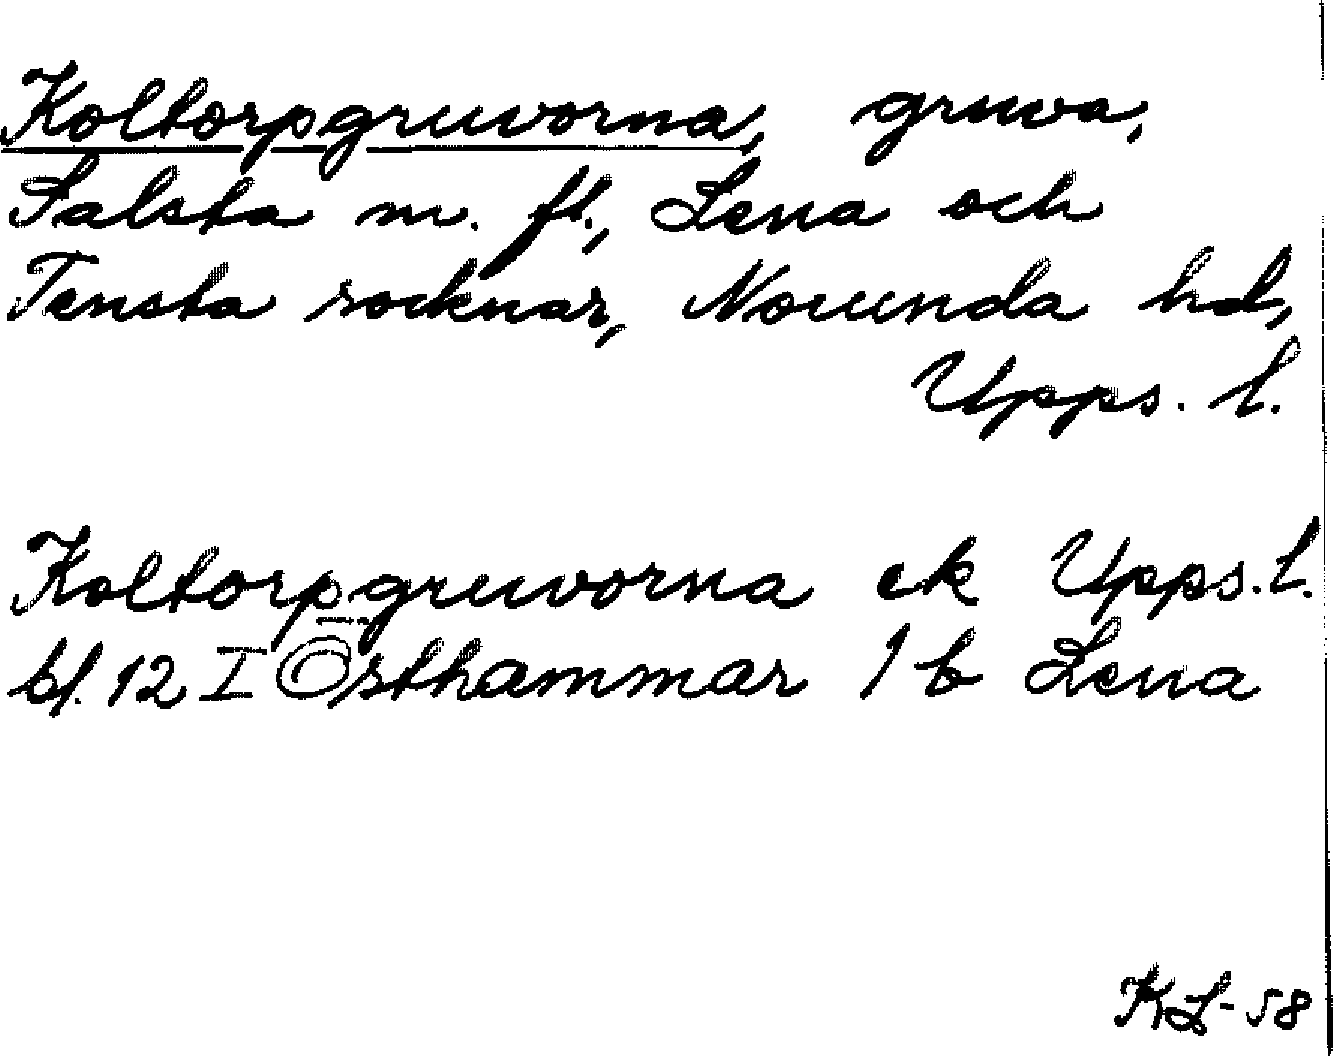 Koltorpgruvorna, gruva,
Salsta m. fl., Lena och
Tensta socknar, Norunda hd,
Upps. l.
Koltorpgruvorna ek Upps. l.
bl. 12 I Östhammar 1 b Lena
KL-58